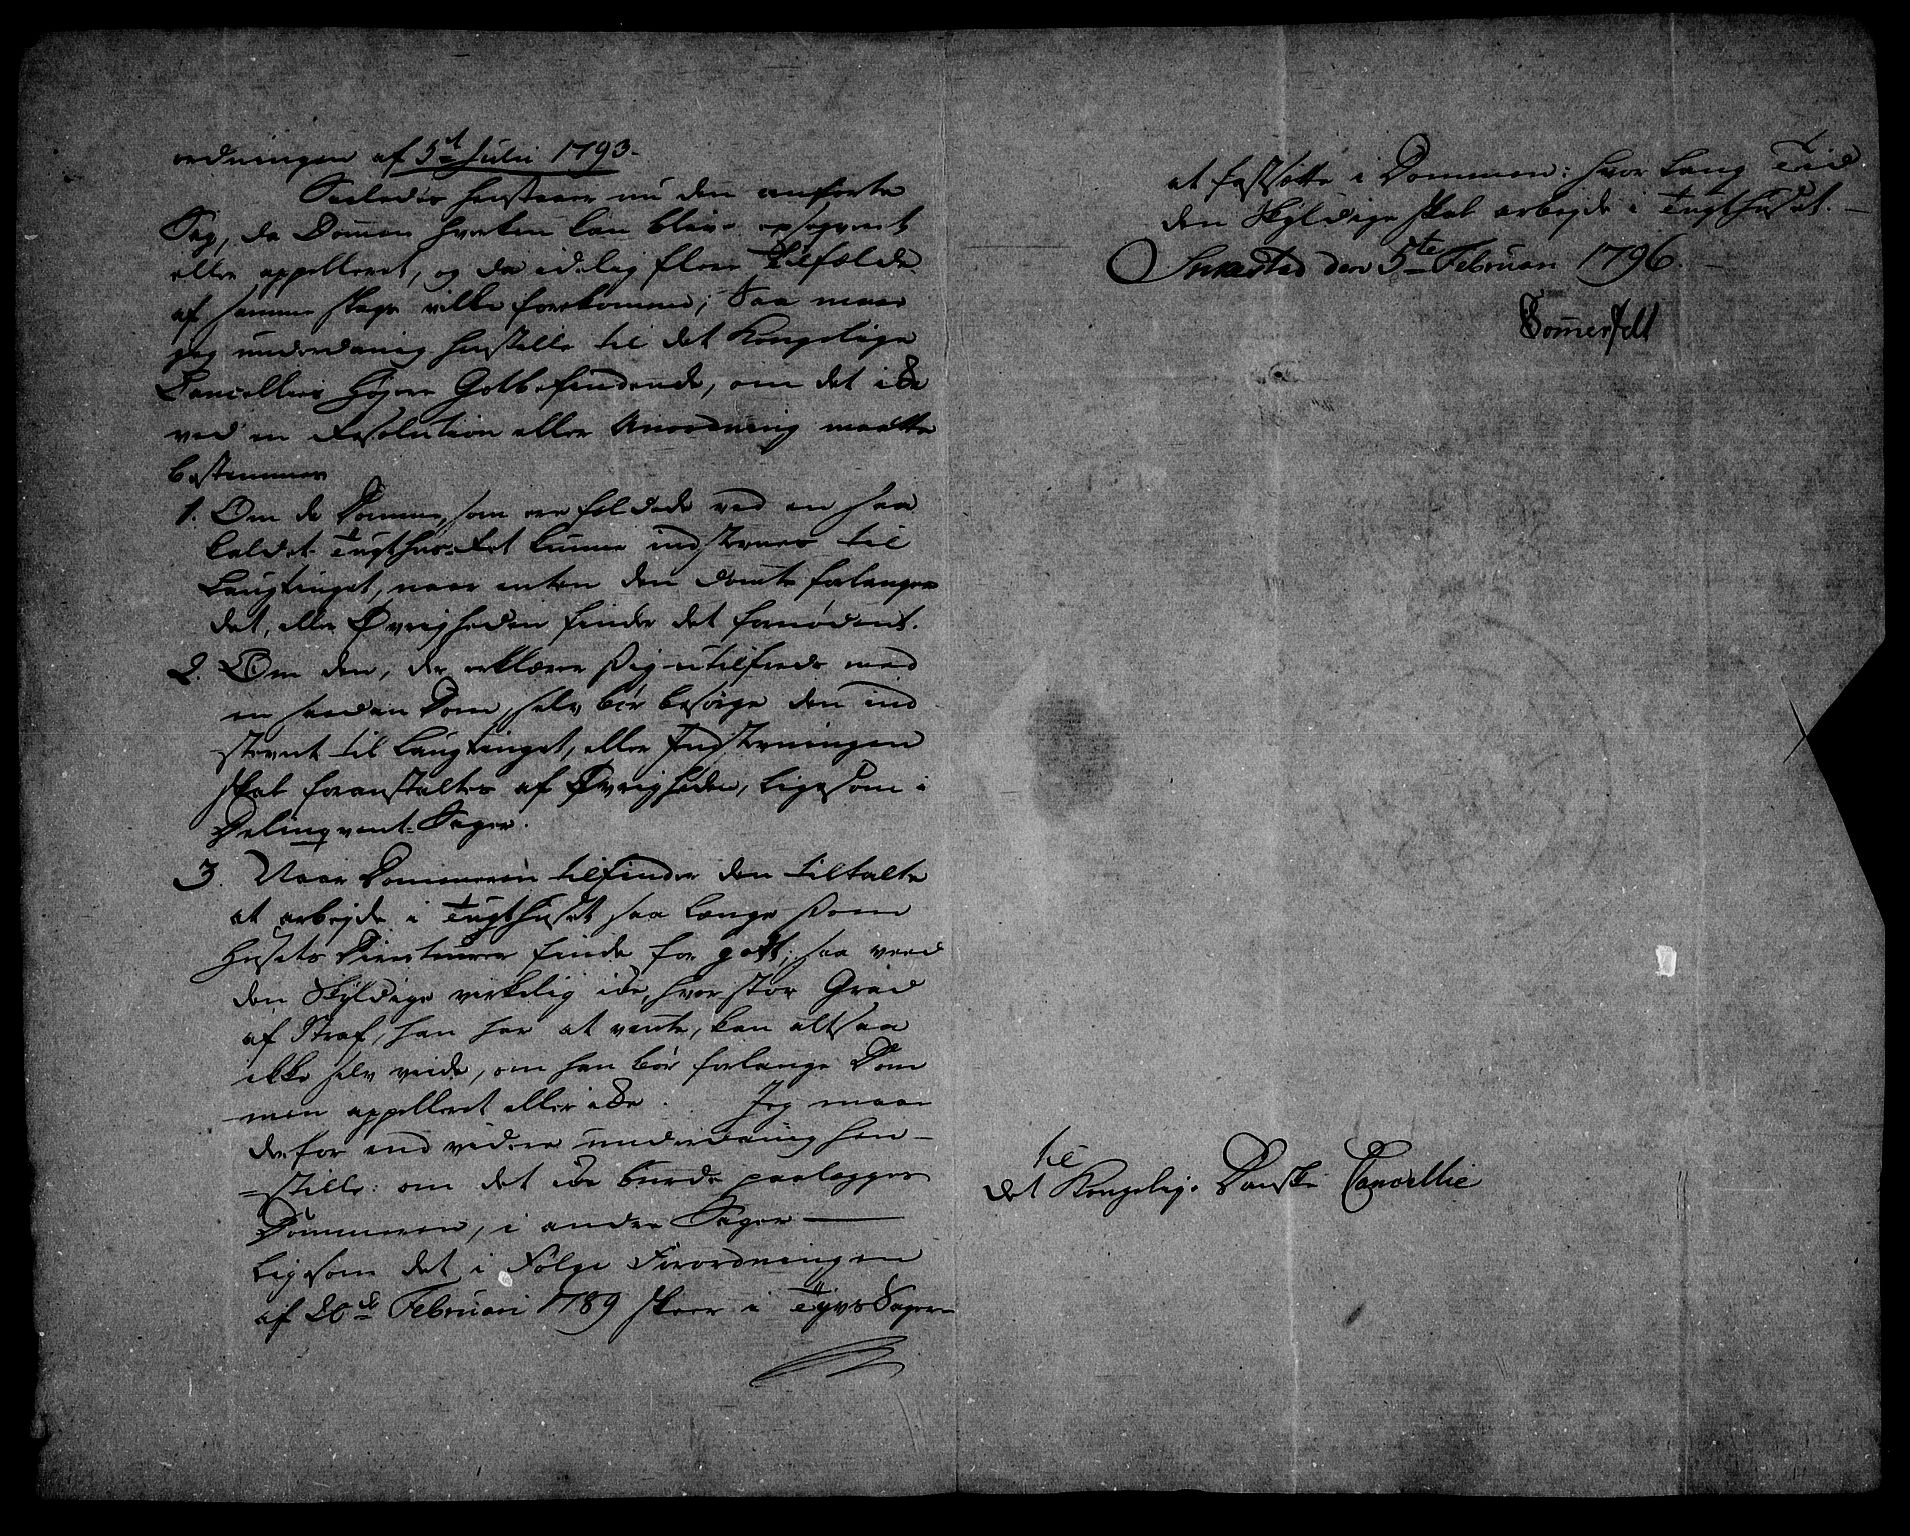 ordningen af 5t Julii 1793.
Saaledes henstaaer nu den anførte
Sag, da Dommen hverken kan blive exseqveret
eller appelleret, og da idelig flere Tilfælde
af samme slags ville forekomme; Saa maae
jeg underdanig henstille til det Kongelige
Cancellies høyere Gotbefindende, om det ikke
ved en Resolution eller Anordning maatte
bestemmes
1. Om de Domme, som ere fældede ved en saa
kaldet Tugthus-Ret kunne indstevnes til
Laugtinget, naar enten den dømte forlanger
det, eller Øvrigheden finder det fornødent.
2. Om den, der erklærer sig utilfreds med
en saadan Dom, selv bør besørge den ind
stevnt til Laugtinget, eller Indstevningen
skal foranstaltes af Øvrigheden, ligesom i
Delinqvent-Sager.
3. Naar Dommeren tilfinder den tiltalte
at arbejde i Tugthuset saa længe som
husets Directeurer finde for gott, saa veed
den skyldige virkelig ikke, hvor stor Grad
af Straf, han har at vente, kan altsaa
ikke selv vide, om han bør forlange Dom
men appelleret eller ikke. Jeg maae
derfor end videre underdanig hen-
=stille: om det ikke burde paalægges
Dommeren, i andre Sager —
ligesom det i Følge Forordningen
af 20de Februari 1789 skeer i Tyvs Sager
at fastsætte i Dommen: hvor lang Tid
den skyldige skal arbejde i Tugthuset. —
Smested den 5te Februari 1796.
Somerfelt
til
det Kongelige Danske Cancellie